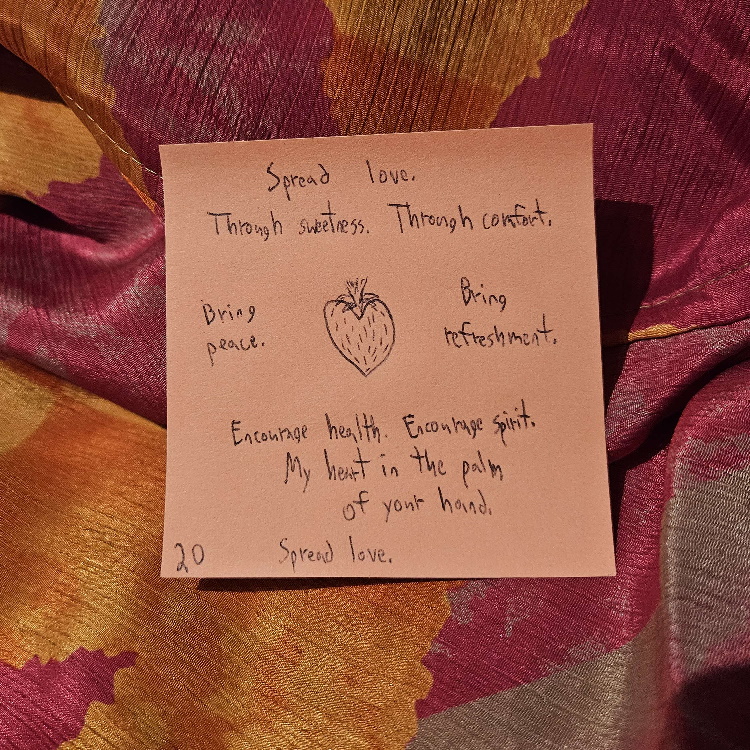 Spread love.
Through sweetness. Through comfort.
Bring
peace.
Bring
refreshment.
Encourage health. Encourage spirit.
My heart in the palm
of your hand.
20 Spread love.